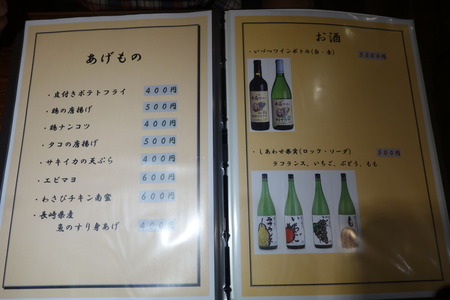 あげもの
・皮付きポテトフライ 400円
・鶏の唐揚げ 500円
・鶏ナンコツ 400円
・タコの唐揚げ 500円
・サキイカの天ぷら 400円
・エビマヨ 600円
・わさびチキン南蛮 600円
・長崎県産
魚のすり身あげ 400円
お酒
・いづつワインボトル(白・赤)
・しあわせ果実(ロック・ソーダ) 500円
ラフランス、いちご、ぶどう、もも